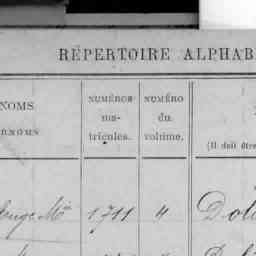 RÉPERTOIRE ALPHAB
NOMS
RNOMS
NUMÉROS
ma-
tricules.
NUMÉRO
du
volume.
(Il doit être
1711 4